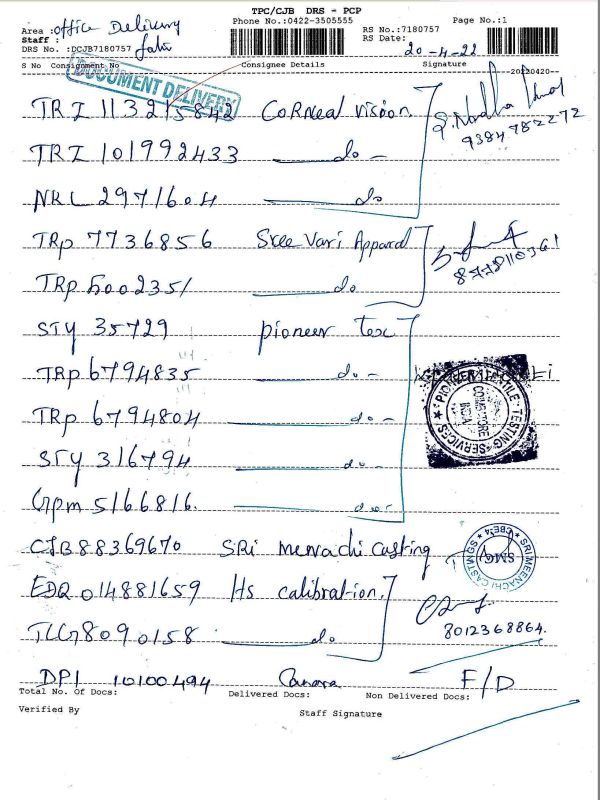 TPC/CJB DRS - PCP
Area : office Delivery Phone No.:0422-3505555 RS No.:7180757 Page No.:1
Staff : RS Date:
DRS No. :DCJB7180757 20-4-22
S No Consignment No Consignee Details Signature -20220420-
DOCUMENT DELIVERY
TRZ 113215842 Corneal vision
9384782272
TRZ 101992433 do -
NRL 2971604 do
TRp 7736856 Sree Vari Apparel
TRp 5002351 do
STY 35729 pioneer tex
TRp 6794835 do -
PIONEER TEXTILE TESTING SERVICES COIMBATORE INDIA
TRp 6794804 do -
STY 316794 do -
Gpm 5166816. do -
CJB 88369670 SRi menachi Casting
SRI MEENACHI CASTINGS CBE-4 SMG
EDQ 014881659 Hs calibration.
8012368864.
TCG 8090158 do
DPI 10100494 Canara F/D
Total No. Of Docs: Delivered Docs: Non Delivered Docs:
Verified By Staff Signature